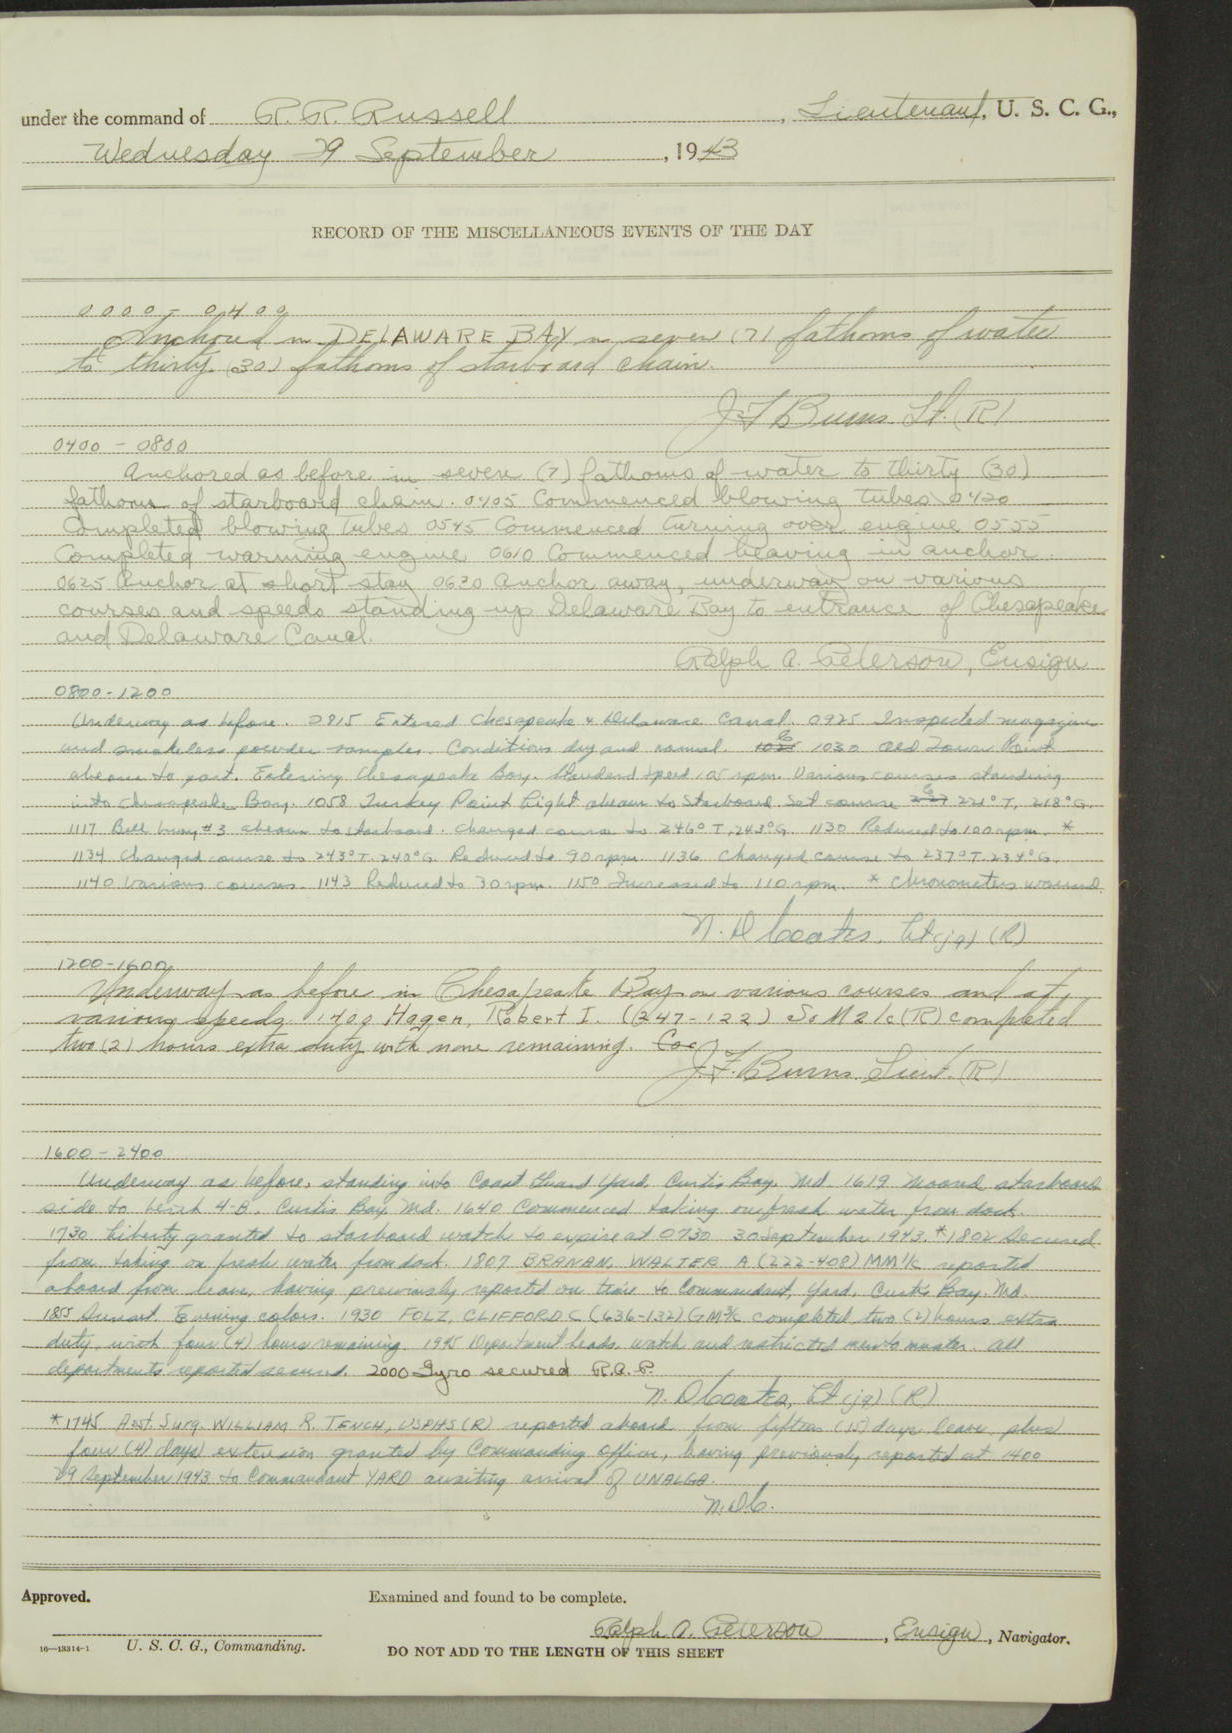 under the command of R. R. Russell, Lieutenant, U. S. C. G.,
Wednesday 29 September, 1943
RECORD OF THE MISCELLANEOUS EVENTS OF THE DAY
0000 - 0400
Anchored in DELAWARE BAY in seven (7) fathoms of water
to thirty (30) fathoms of starboard chain.
J F Burns Lt. (R)
0400 - 0800
Anchored as before in seven (7) fathoms of water to thirty (30)
fathoms of starboard chain. 0405 Commenced blowing tubes 0420
Completed blowing tubes 0545 Commenced turning over engine 0555
Completed warming engine 0610 Commenced heaving in anchor.
0625 Anchor at short stay 0630 Anchor away, underway on various
courses and speeds standing up Delaware Bay to entrance of Chesapeake
and Delaware Canal.
Ralph A. Peterson, Ensign
0800-1200
Underway as before. 0815 Entered Chesapeake & Delaware Canal. 0925 Inspected magazine
and smokeless powder samples. Conditions dry and normal. 1030 Old Town Point
abeam to port. Entering Chesapeake Bay. Standard speed 105 rpm. Various courses standing
into Chesapeake Bay. 1058 Turkey Point Light abeam to Starboard. Set course 221°T, 218°G.
1117 Bell buoy #3 abeam to starboard. Changed course to 246°T, 243°G 1130 Reduced to 100 rpm. *
1134 Changed course to 243°T. 240°G Reduced to 90 rpm. 1136 Changed course to 237°T. 234°G.
1140 Various courses. 1143 Reduced to 30 rpm. 1150 Increased to 110 rpm. * Chronometers wound.
N. D Coates, Lt (jg) (R)
1200-1600
Underway as before in Chesapeake Bay on various courses and at
various speeds. 1400 Hagen, Robert I. (247-122) SoM2/c (R) completed
two (2) hours extra duty with none remaining.
J. F. Burns Lieut. (R)
1600 - 2400
Underway as before, standing into Coast Guard Yard, Curtis Bay, Md. 1619 Moored starboard
side to berth 4-B, Curtis Bay, Md. 1640 Commenced taking on fresh water from dock.
1730 Liberty granted to starboard watch to expire at 0730 30 September 1943. *1802 Secured
from taking on fresh water from dock. 1807 BRANAN, WALTER A (222-408) MM1/c reported
aboard from leave, having previously reported on time to Commandant, Yard, Curtis Bay. Md.
1855 Sunset Evening colors. 1930 FOLZ, CLIFFORD C (636-132) GM3/c completed two (2) hours extra
duty with four (4) hours remaining. 1945 Department heads, watch and restricted men to muster. All
departments reported secured. 2000 Gyro secured R.A.P.
N. D Coates, Lt (jg) (R)
*1745 Asst. Surg. WILLIAM R. TENCH, USPHS (R) reported aboard from fifteen (15) days leave plus
four (4) days extension granted by Commanding Officer, having previously reported at 1400
29 September 1943 to Commandant YARD awaiting arrival of UNALGA.
N.D.C.
Approved.
Examined and found to be complete.
Ralph A. Peterson, Ensign, Navigator.
16—13314-1 U. S. C. G., Commanding.
DO NOT ADD TO THE LENGTH OF THIS SHEET